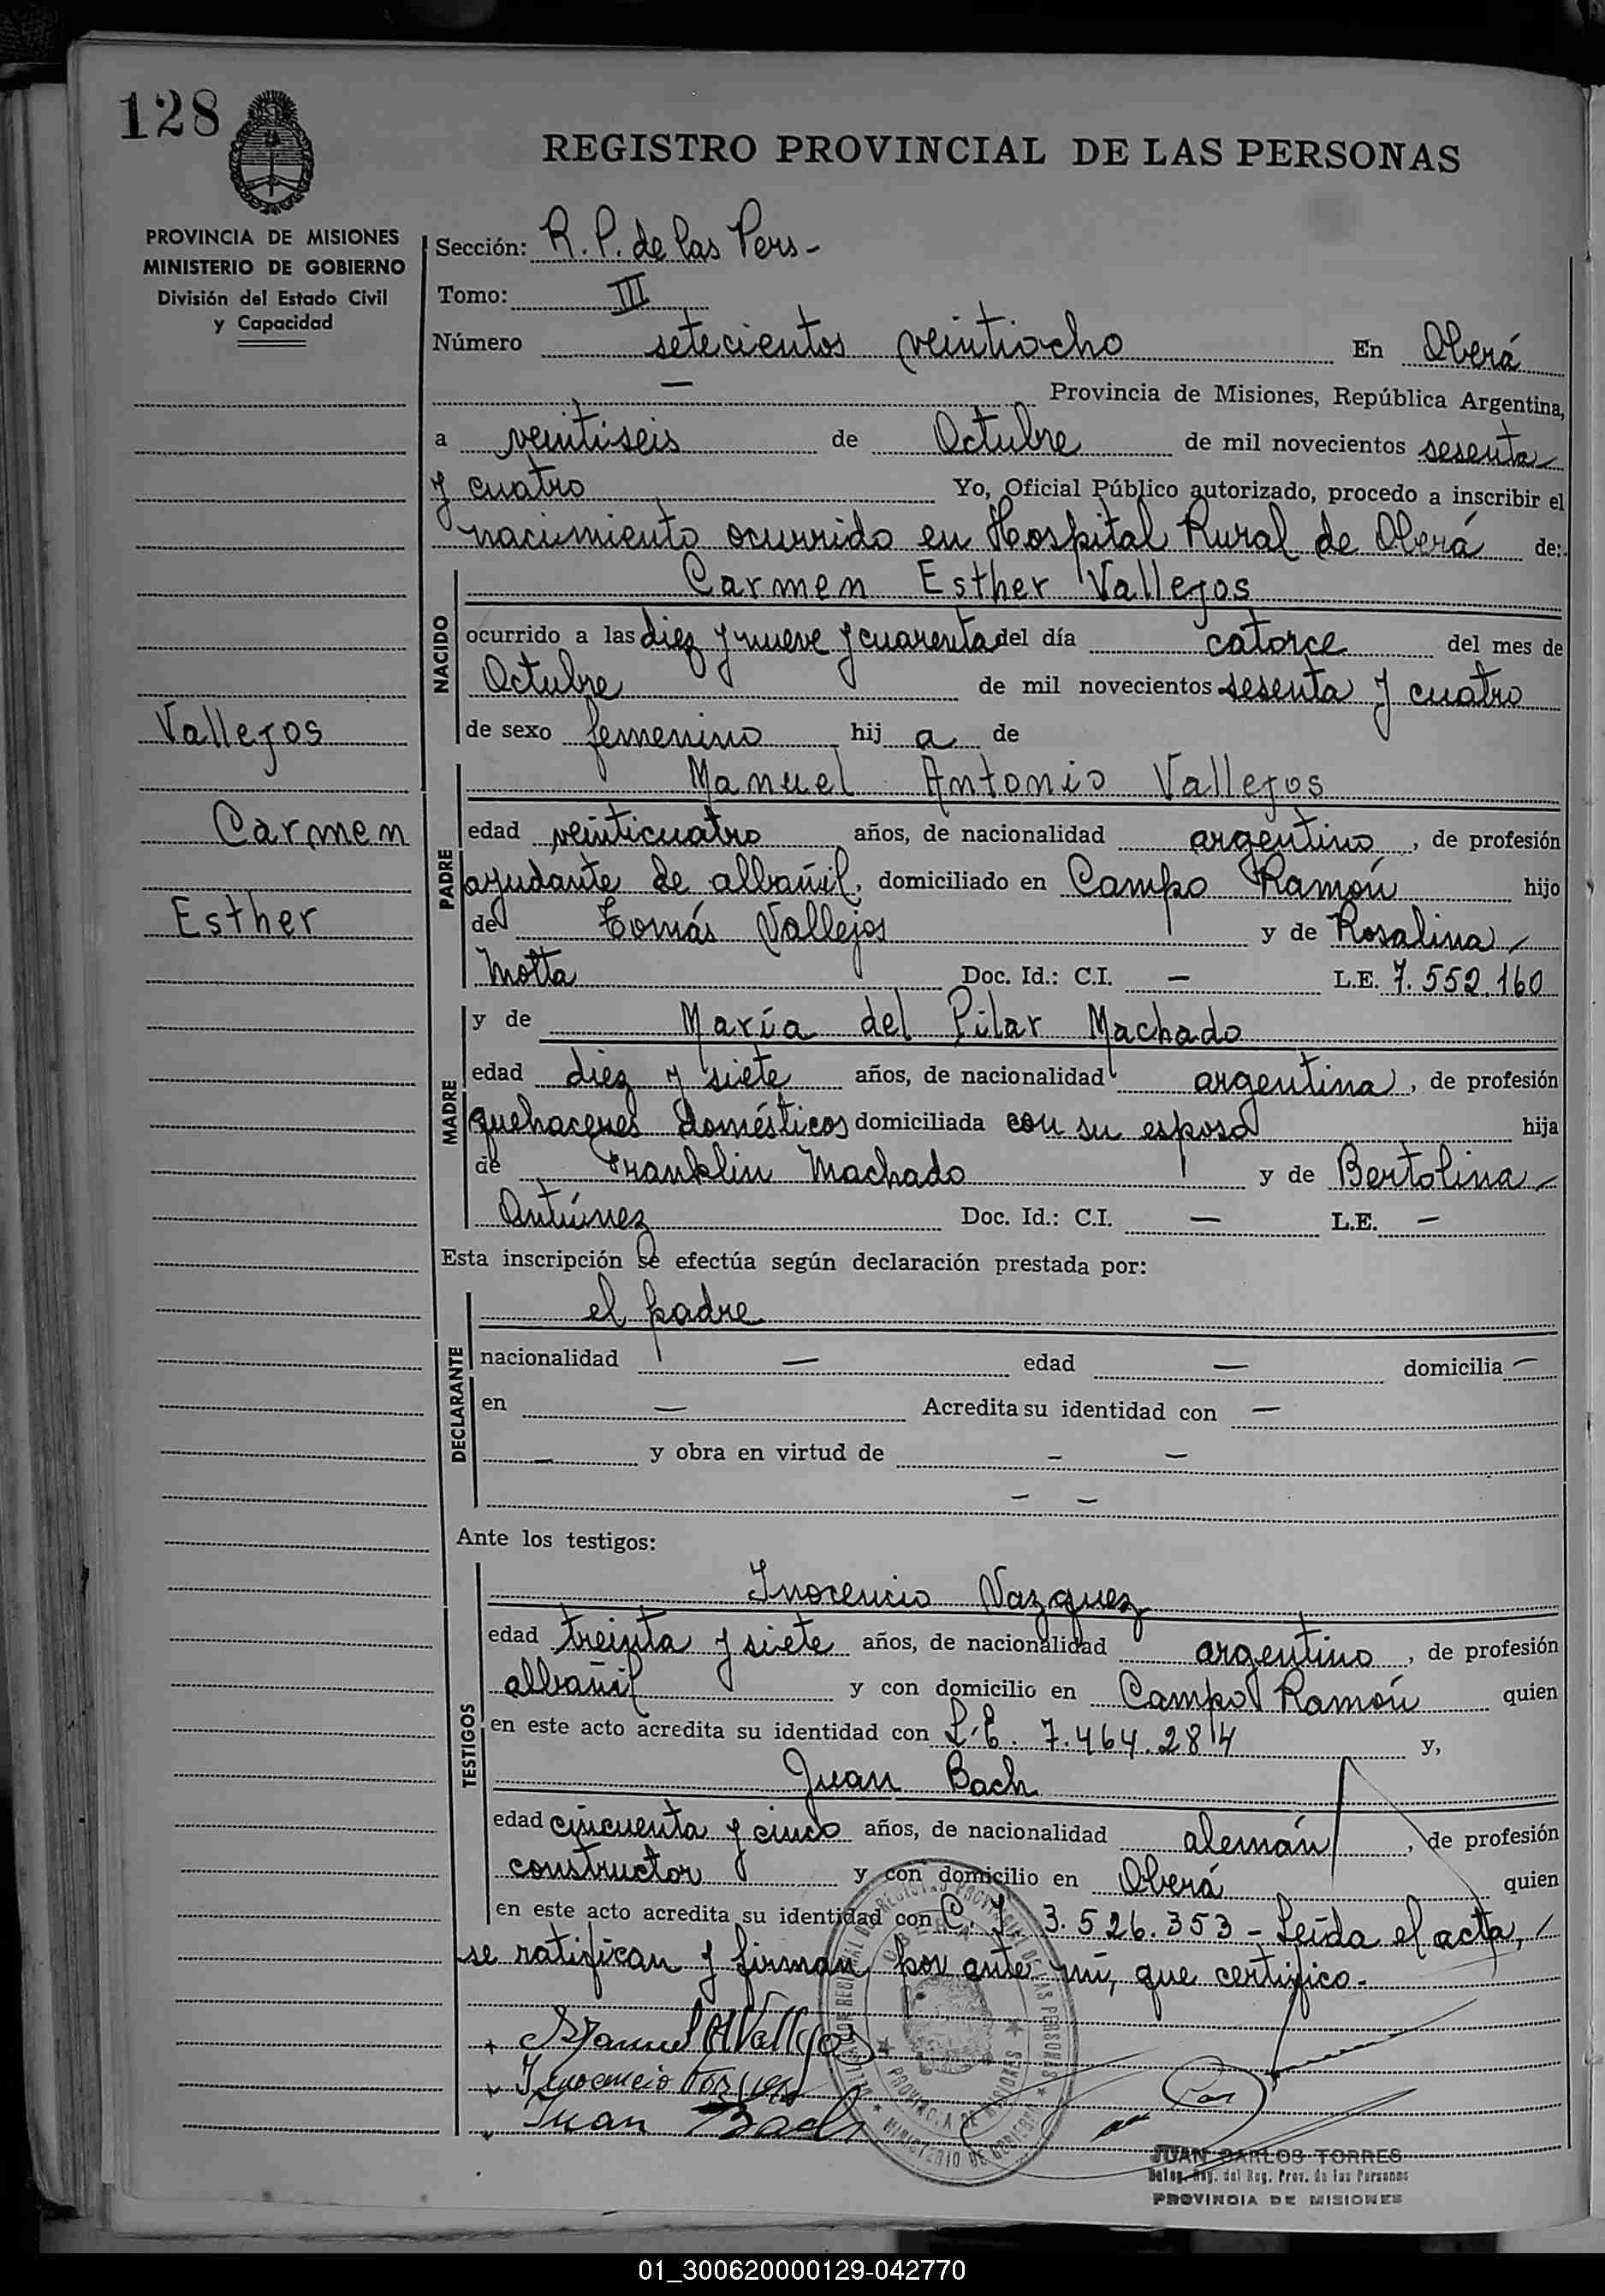 128
REGISTRO PROVINCIAL DE LAS PERSONAS
PROVINCIA DE MISIONES
MINISTERIO DE GOBIERNO
División del Estado Civil
y Capacidad
Sección: R. P. de las Pers-
Tomo: III
Número setecientos veintiocho En Oberá
— Provincia de Misiones, República Argentina,
a veintiseis de Octubre de mil novecientos sesenta
y cuatro Yo, Oficial Público autorizado, procedo a inscribir el
nacimiento ocurrido en Hospital Rural de Oberá de:
NACIDO
Carmen Esther Vallejos
ocurrido a las diez y nueve y cuarenta del día catorce del mes de
Octubre de mil novecientos sesenta y cuatro
de sexo femenino hij a de
Vallejos
Carmen
Esther
PADRE
Manuel Antonio Vallejos
edad veinticuatro años, de nacionalidad argentino, de profesión
ayudante de albañil, domiciliado en Campo Ramón hijo
de Tomás Vallejos y de Rosalina
Motta Doc. Id.: C.I. — L.E. 7.552.160
MADRE
y de María del Pilar Machado
edad diez y siete años, de nacionalidad argentina, de profesión
quehaceres domésticos domiciliada con su esposo hija
de Franklin Machado y de Bertolina
Antúnez Doc. Id.: C.I. — L.E. —
Esta inscripción se efectúa según declaración prestada por:
DECLARANTE
el padre
nacionalidad — edad — domicilia —
en — Acredita su identidad con —
— y obra en virtud de — —
— —
Ante los testigos:
TESTIGOS
Inocencio Vazquez
edad treinta y siete años, de nacionalidad argentino, de profesión
albañil y con domicilio en Campo Ramón quien
en este acto acredita su identidad con L.E. 7.464.284 y,
Juan Bach
edad cincuenta y cinco años, de nacionalidad alemán, de profesión
constructor y con domicilio en Oberá quien
en este acto acredita su identidad con C. I. 3.526.353 - Leída el acta,
se ratifican y firman por ante mí, que certifico.
Manuel A Vallejos
Inocencio
Juan Bach
OBERA
PROVINCIA DE MISIONES
MINISTERIO DE GOBIERNO
JUAN CARLOS TORRES
Deleg. Reg. del Reg. Prov. de las Personas
PROVINCIA DE MISIONES
01_300620000129-042770